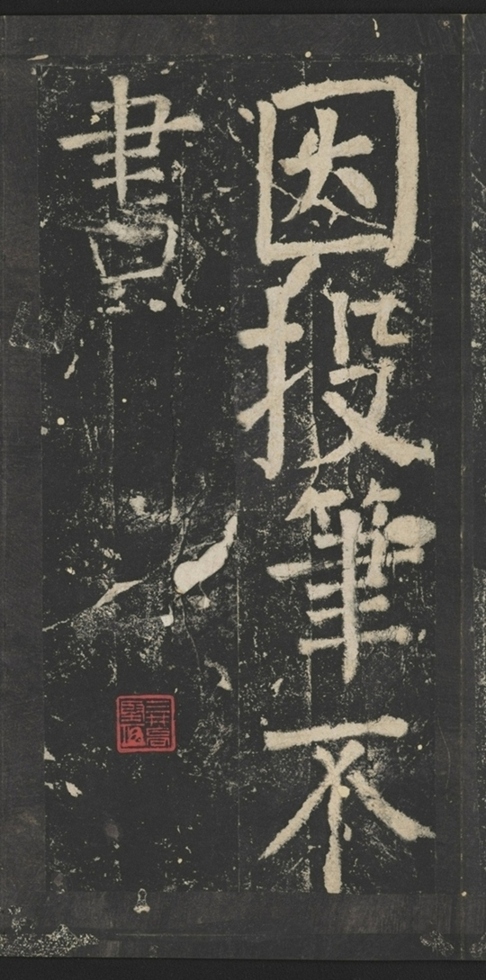 因投筆不
書